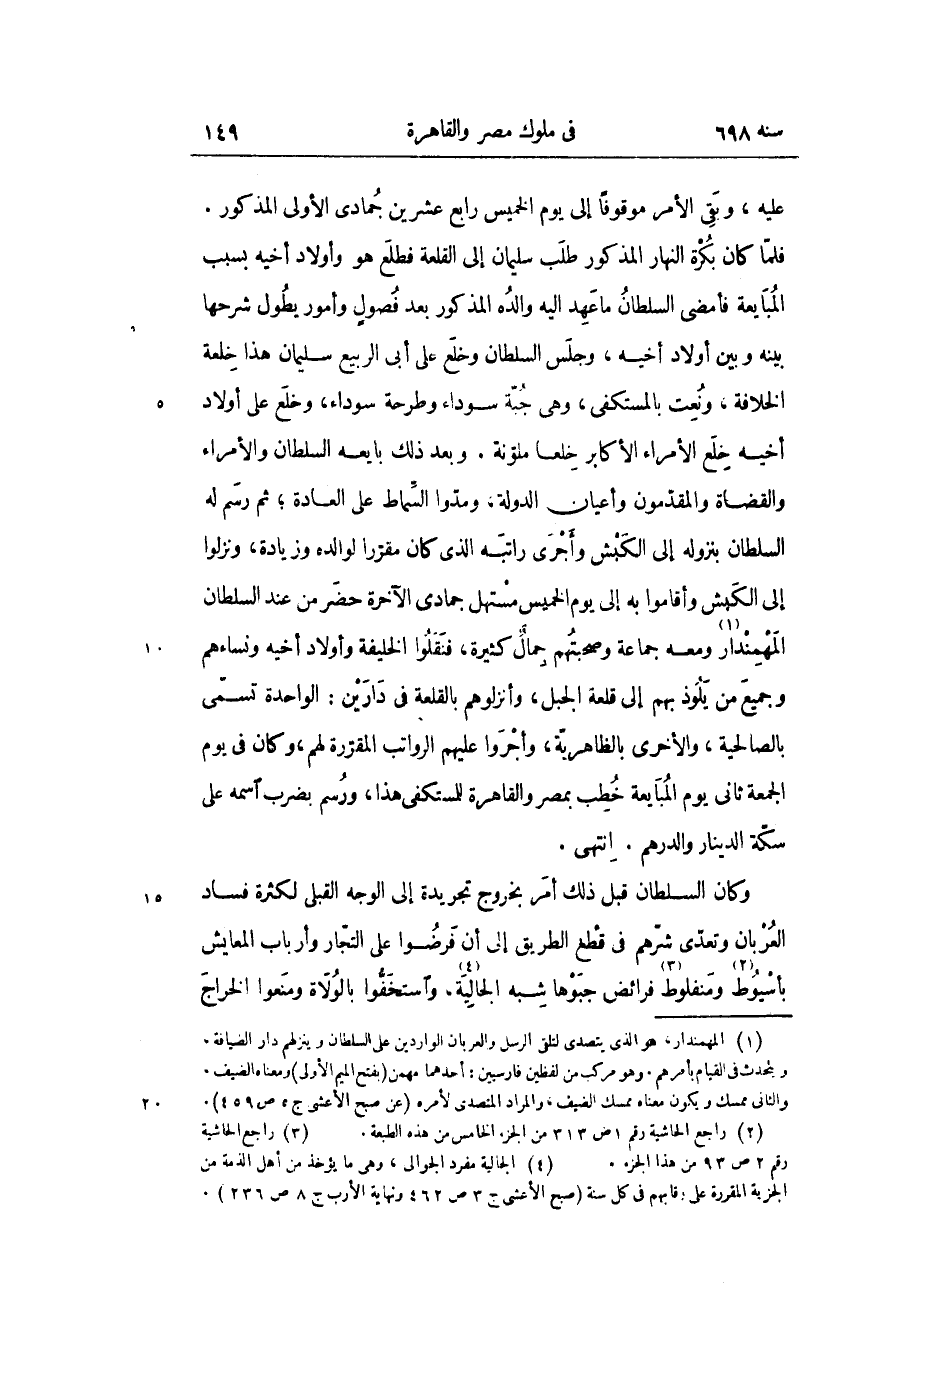 سنه ٦٩٨ فى ملوك مصر والقاهرة ١٤٩
عليه ، وبَقِى الأمر موقوفًا إلى يوم الخميس رابع عشرين جُمادى الأولى المذكور .
فلمّا كان بُكْرَة النهار المذكور طلَب سليمان إلى القلعة فطلَع هو وأولاد أخيه بسبب
المُبَايعة فأمضى السلطانُ ماعَهِد اليه والدُه المذكور بعد فُصولٍ وأمور يطُول شرحها
بينه وبين أولاد أخيه ، وجلَس السلطان وخلَع على أبى الربيع سليمان هذا خِلعة
الخلافة ، ونُعِت بالمستكفى ، وهى جُبّة سوداء وطرحة سوداء ، وخلَع على أولاد ٥
أخيه خِلَع الأمراء الأكابر خِلعا ملوّنة . وبعد ذلك بايعه السلطان والأمراء
والقضاة والمقدّمون وأعيان الدولة ، ومدّوا السِّماط على العادة ؛ ثم رسَم له
السلطان بنزوله إلى الكَبْش وأَجْرَى راتبَه الذى كان مقرّرا لوالده وزيادة ، ونزلوا
إلى الكَبش وأقاموا به إلى يوم الخميس مُسْتهل جمادى الآخرة حضَر من عند السلطان
المَهْمِنْدار (١) ومعه جماعة وصحبتُهم جِمالٌ كثيرة ، فنَقَلُوا الخليفة وأولاد أخيه ونساءهم ١٠
وجميعَ من يَلُوذ بهم إلى قلعة الجبل ، وأنزلوهم بالقلعة فى دَارَيْن : الواحدة تسمّى
بالصالحية ، والأخرى بالظاهريّة ، وأجْرَوا عليهم الرواتب المقرّرة لهم ، وكان فى يوم
الجمعة ثانى يوم المُبَايعة خُطِب بمصر والقاهرة للمستكفى هذا ، ورُسم بضرب آسمه على
سكّة الدينار والدرهم . إنتهى .
وكان السلطان قبل ذلك أمَر بخروج تجريدة إلى الوجه القبلى لكثرة فساد ١٥
العُرْبان وتعدّى شرّهم فى قطْع الطريق إلى أن فَرضُوا على التجّار وأرباب المعايش
بأَسْيُوط (٢) ومَنفلوط (٣) فرائض جبَوْها شِبه الجالِيَة (٤) . وآستخَفُّوا بالوُلَاة ومنَعوا الخراجَ
(١) المهمندار ، هو الذى يتصدى لتلقى الرسل والعربان الواردين على السلطان وينزلهم دار الضيافة .
ويتحدث فى القيام بأمرهم . وهو مركب من لفظين فارسيين : أحدهما مهمن (بفتح الميم الأولى) ومعناه الضيف .
والثانى ممسك ويكون معناه ممسك الضيف ، والمراد المتصدى لأمره (عن صبح الأعشى ج ٥ ص ٤٥٩) . ٢٠
(٢) راجع الحاشية رقم ١ ص ٣١٣ من الجزء الخامس من هذه الطبعة . (٣) راجع الحاشية
رقم ٢ ص ٩٣ من هذا الجزء . (٤) الجالية مفرد الجوالى ، وهى ما يؤخذ من أهل الذمة من
الجزية المقررة على رقابهم فى كل سنة (صبح الأعشى ج ٣ ص ٤٦٢ ونهاية الأرب ج ٨ ص ٢٣٦ ) .